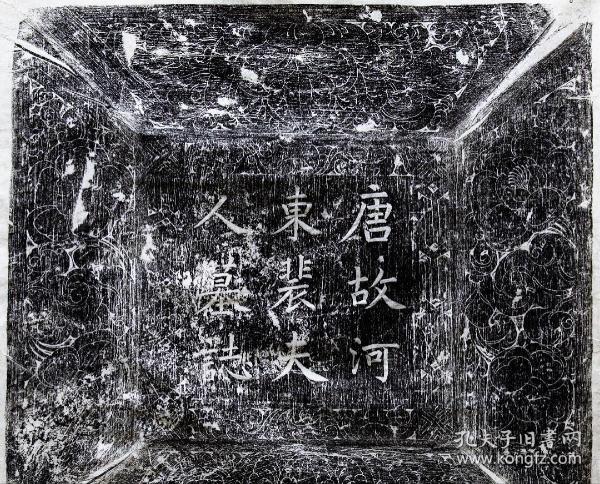 唐故河
東裴夫
人墓誌
孔夫子旧書网
www.kongfz.com